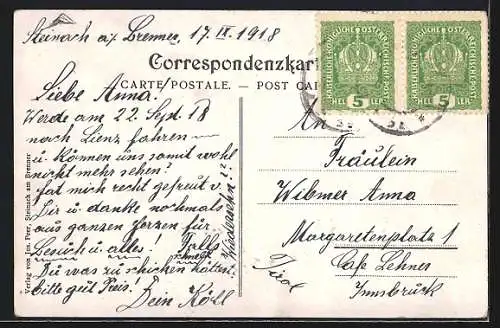 Steinach a/ Brenner, 17. IX. 1918
Correspondenzkart
CARTE POSTALE. — POST CA
KAISERLICHE KÖNIGLICHE ÖSTERREICHISCHE POST
5
HELLER
KAISERLICHE KÖNIGLICHE ÖSTERREICHISCHE POST
5
HELLER
Liebe Anna.
Werde am 22. Sept. 18
nach Lienz fahren
u. können uns somit wohl
nicht mehr sehen!
Hat mich recht gefreut v.
Dir u. danke nochmals
aus ganzen Herzen für
Besuch u alles! Falls
Du was zu schicken hättest
bitte gut Preis! Dein
Wiedersehn!?
Verlag von Joh. Peer, Steinach am Brenner
An
Fräulein
Wibmer Anna
Margaretenplatz 1
Cafe Lehner
Innsbruck
Tirol